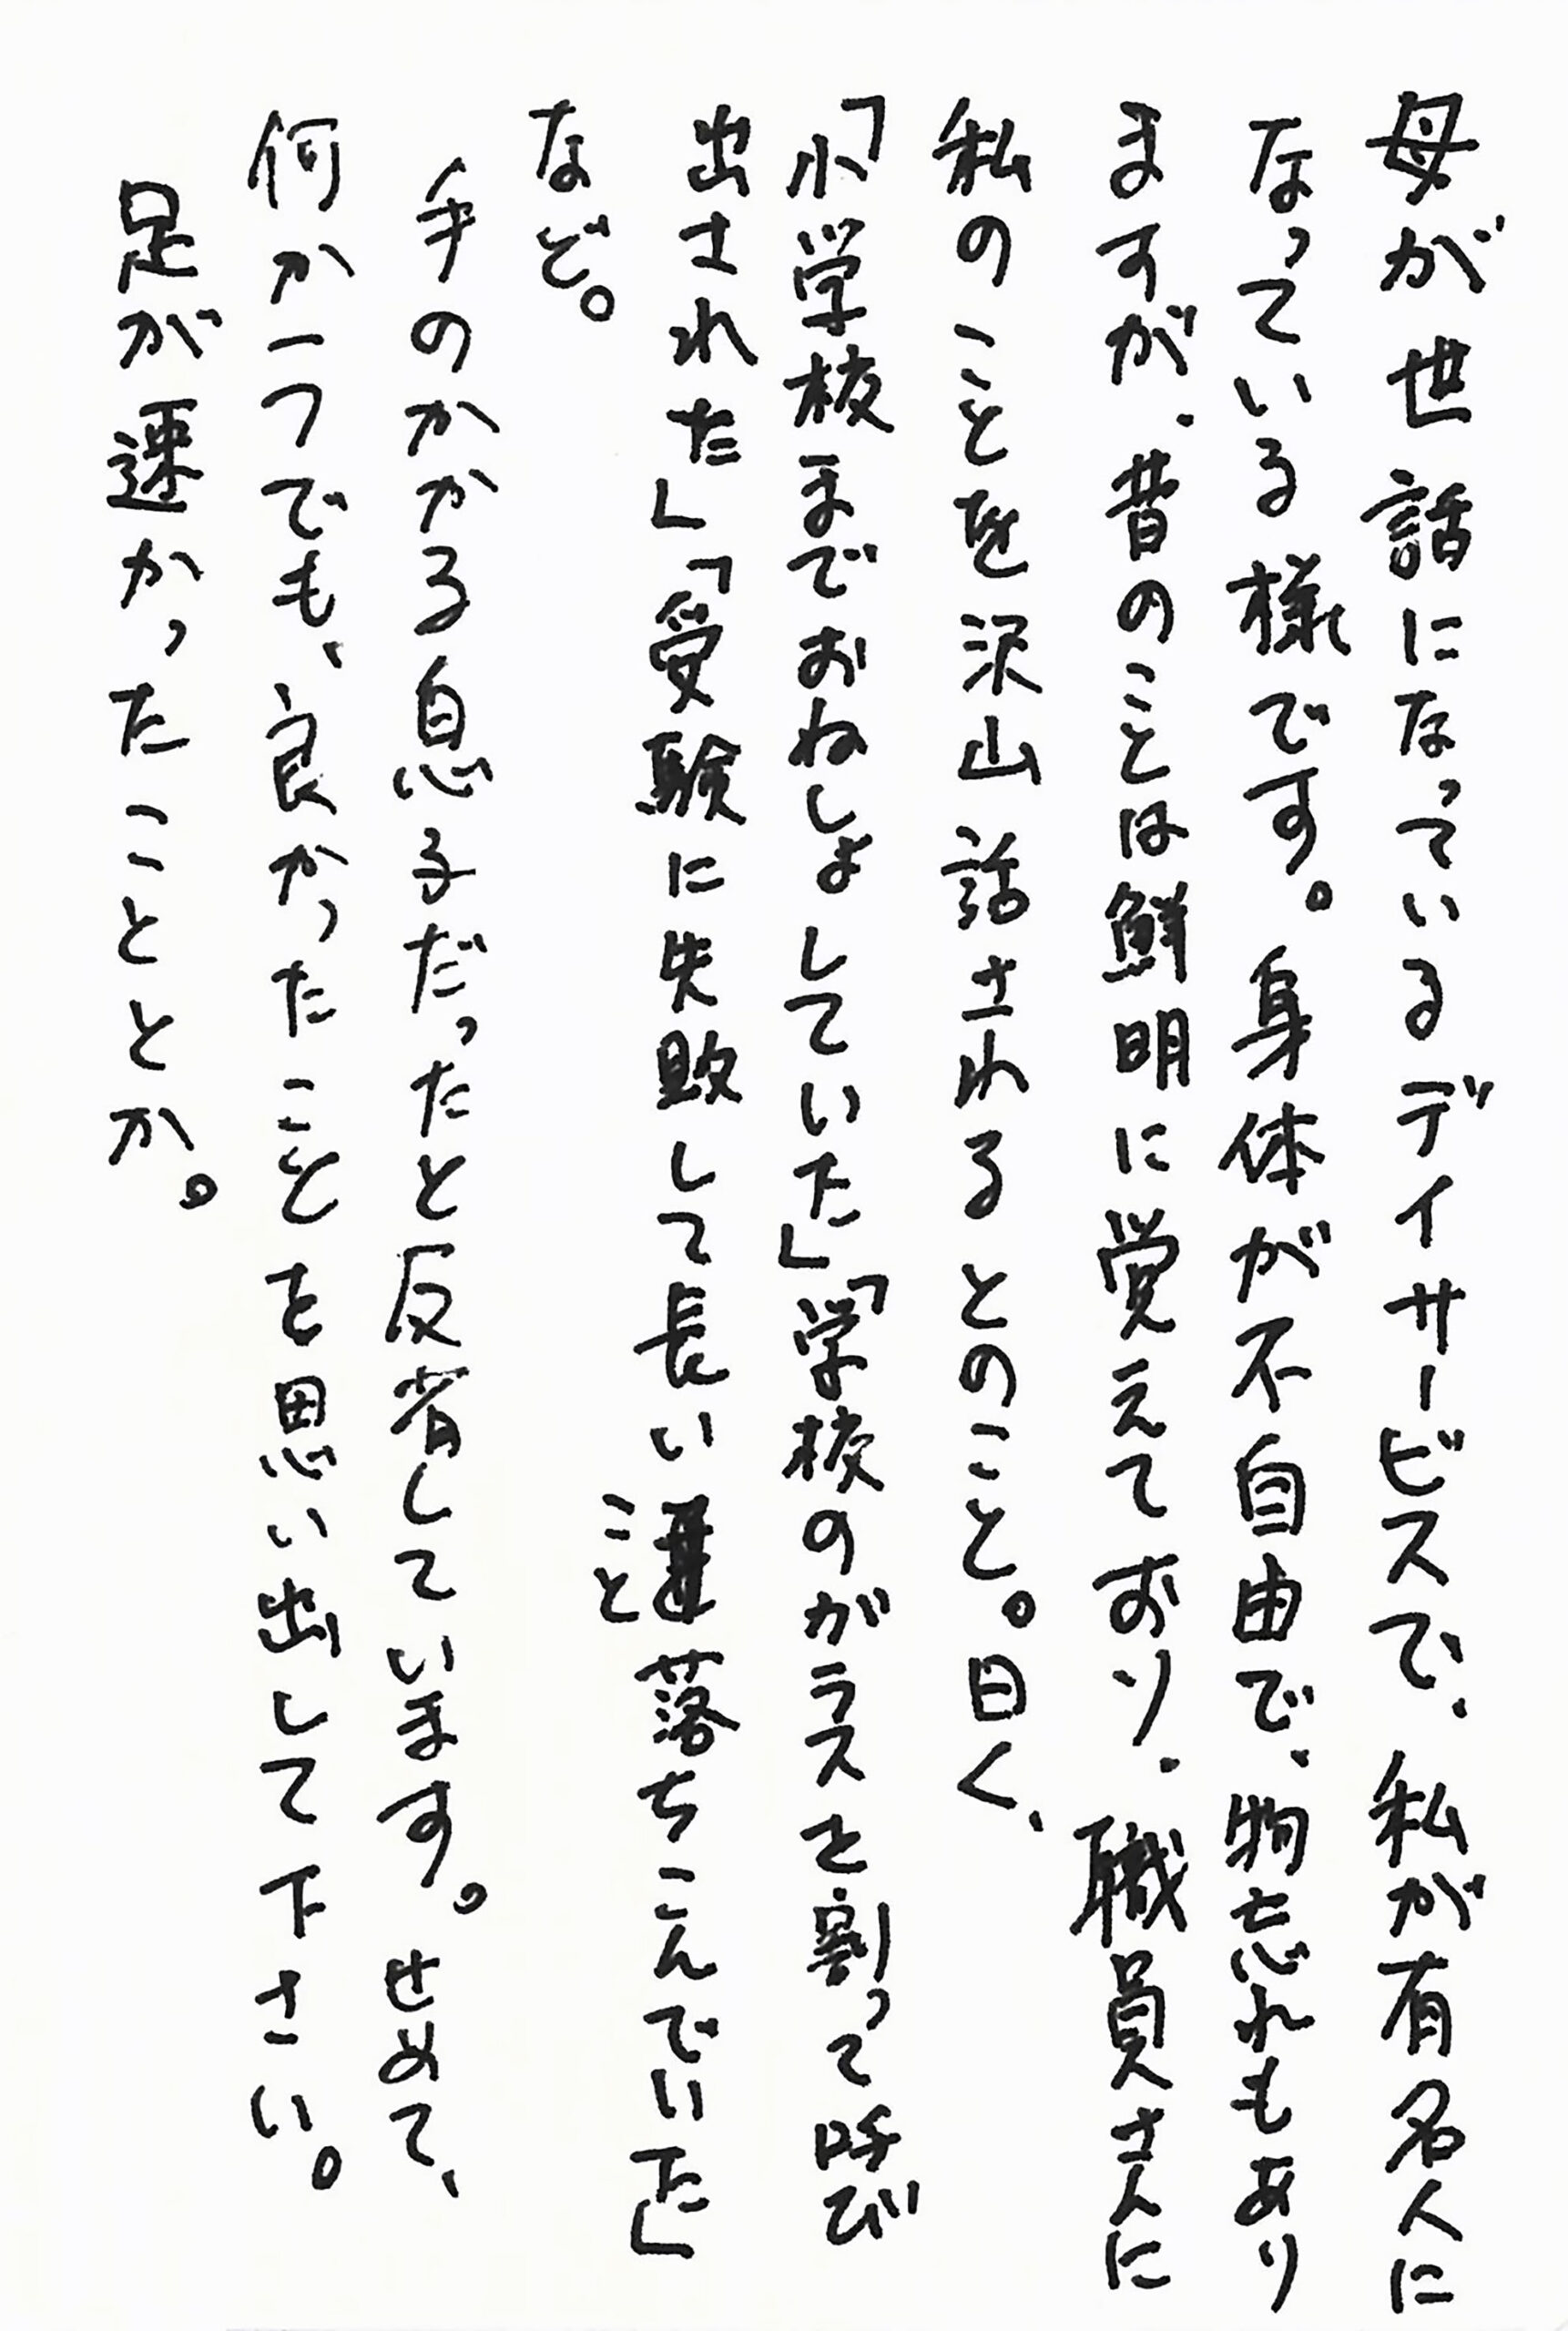 母が世話になっているデイサービスで、私が有名人に
なっている様です。身体が不自由で、物忘れもあり
ますが、昔のことは鮮明に覚えており、職員さんに
私のことを沢山話されるとのこと。曰く、
「小学校までおねしょしていた」「学校のガラスを割って呼び
出された」「受験に失敗して長いこと落ちこんでいた」
など。
手のかかる息子だったと反省しています。せめて、
何か一つでも、良かったことを思い出して下さい。
足が速かったこととか。